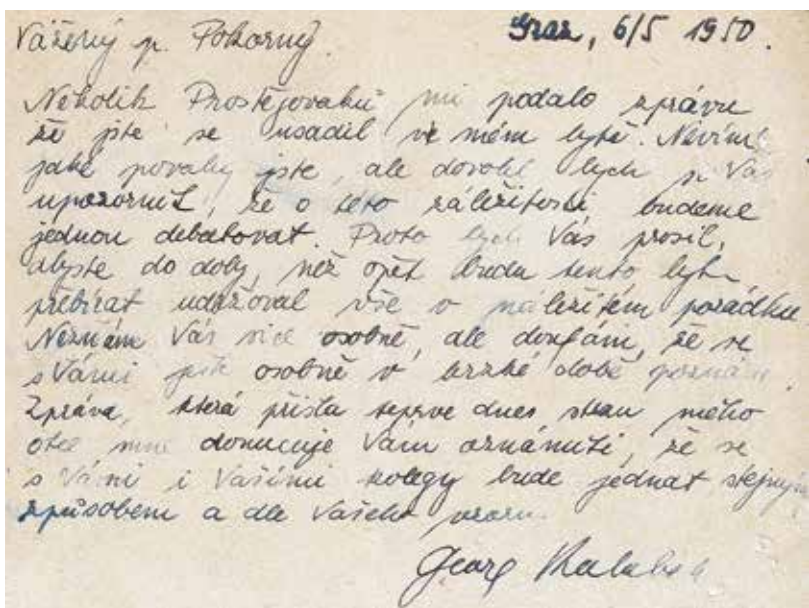 Vážený p. Pokorný. Graz, 6/5 1950.
Několik Prostějovaků mi podalo zprávu
že jste se usadil ve mém bytě. Nevím
jaké povahy jste, ale dovolil bych p Vás
upozornit, že o této záležitosti budeme
jednou debatovat. Proto bych Vás prosil,
abyste do doby, než opět budu tento byt
přebírat udržoval vše v náležitém pořádku
Neznám Vás sice osobně, ale doufám, že se
s Vámi ještě osobně v brzké době poznám.
Zpráva, která přišla teprve dnes stran mého
otce mne donucuje Vám oznámiti, že se
s Vámi i Vašimi kolegy bude jednat stejným
způsobem a dle Vašeho vzoru.
Georg